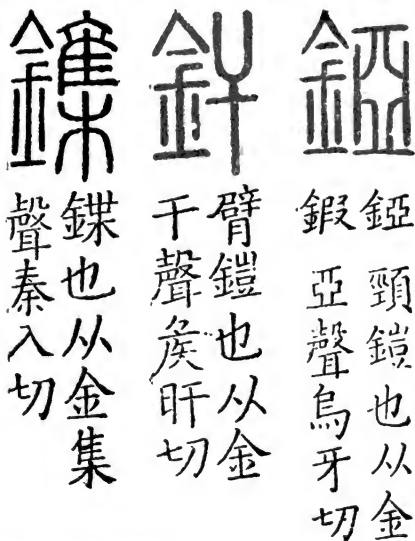 錏
錏頸鎧也从金
鍜亞聲烏牙切
釬
臂鎧也从金
干聲矦旰切
鏶
鍱也从金集
聲秦入切